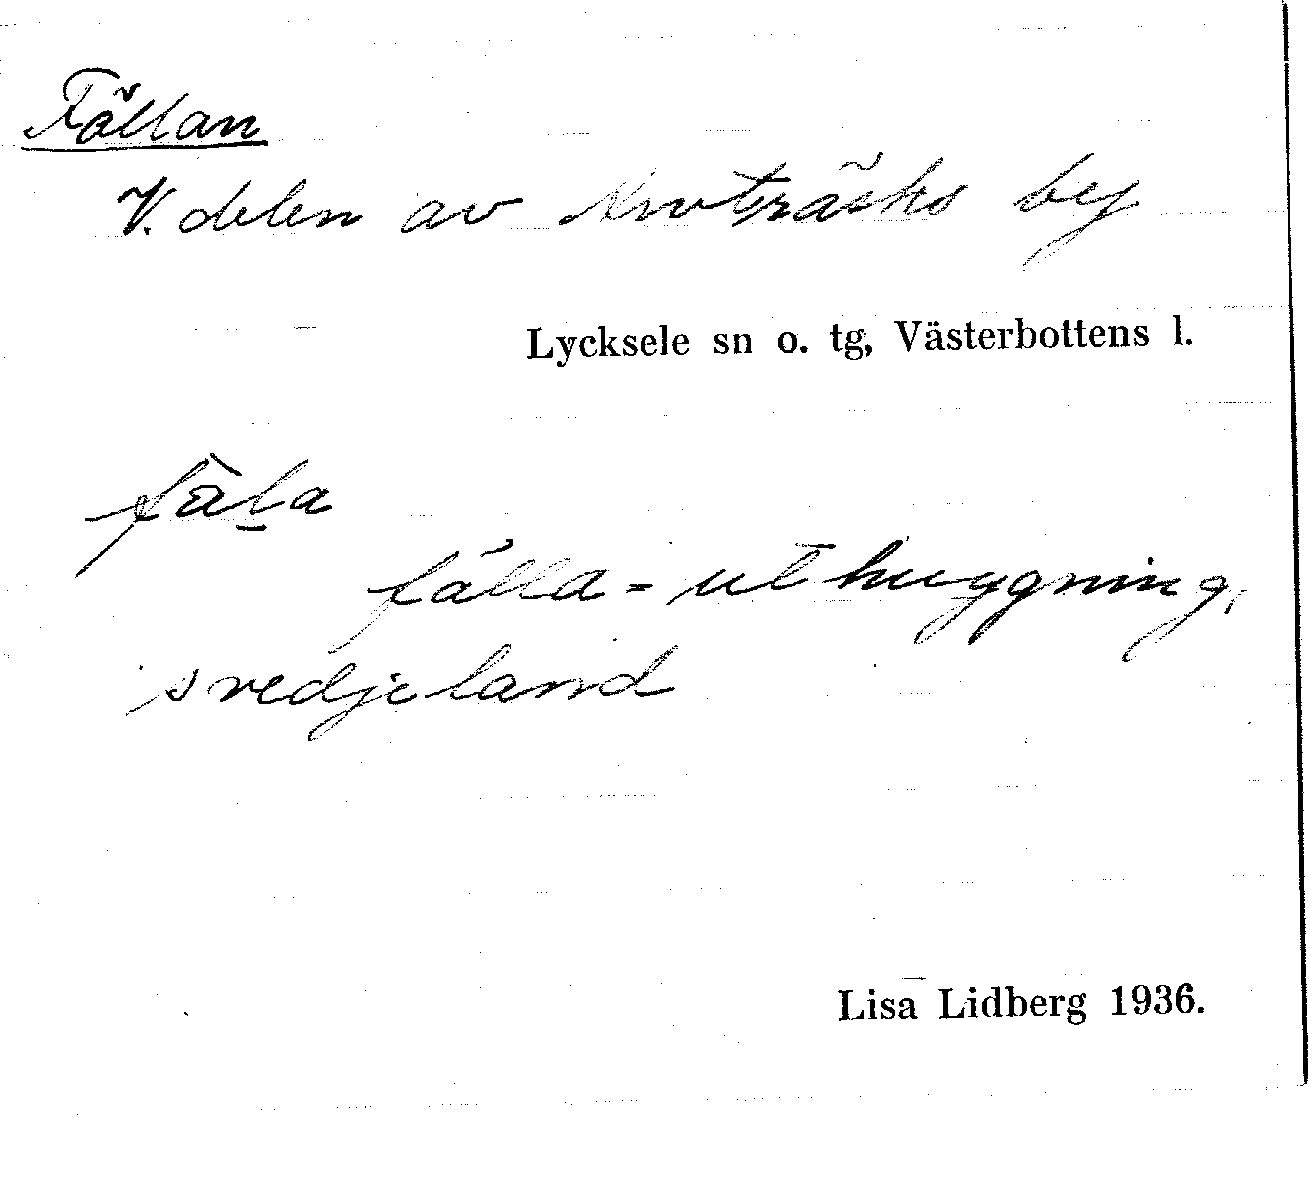 Fällan
V. delen av Knoträsks by
Lycksele sn o. tg, Västerbottens l.
fàl̲a
fälla = uthuggning,
svedjeland
Lisa Lidberg 1936.